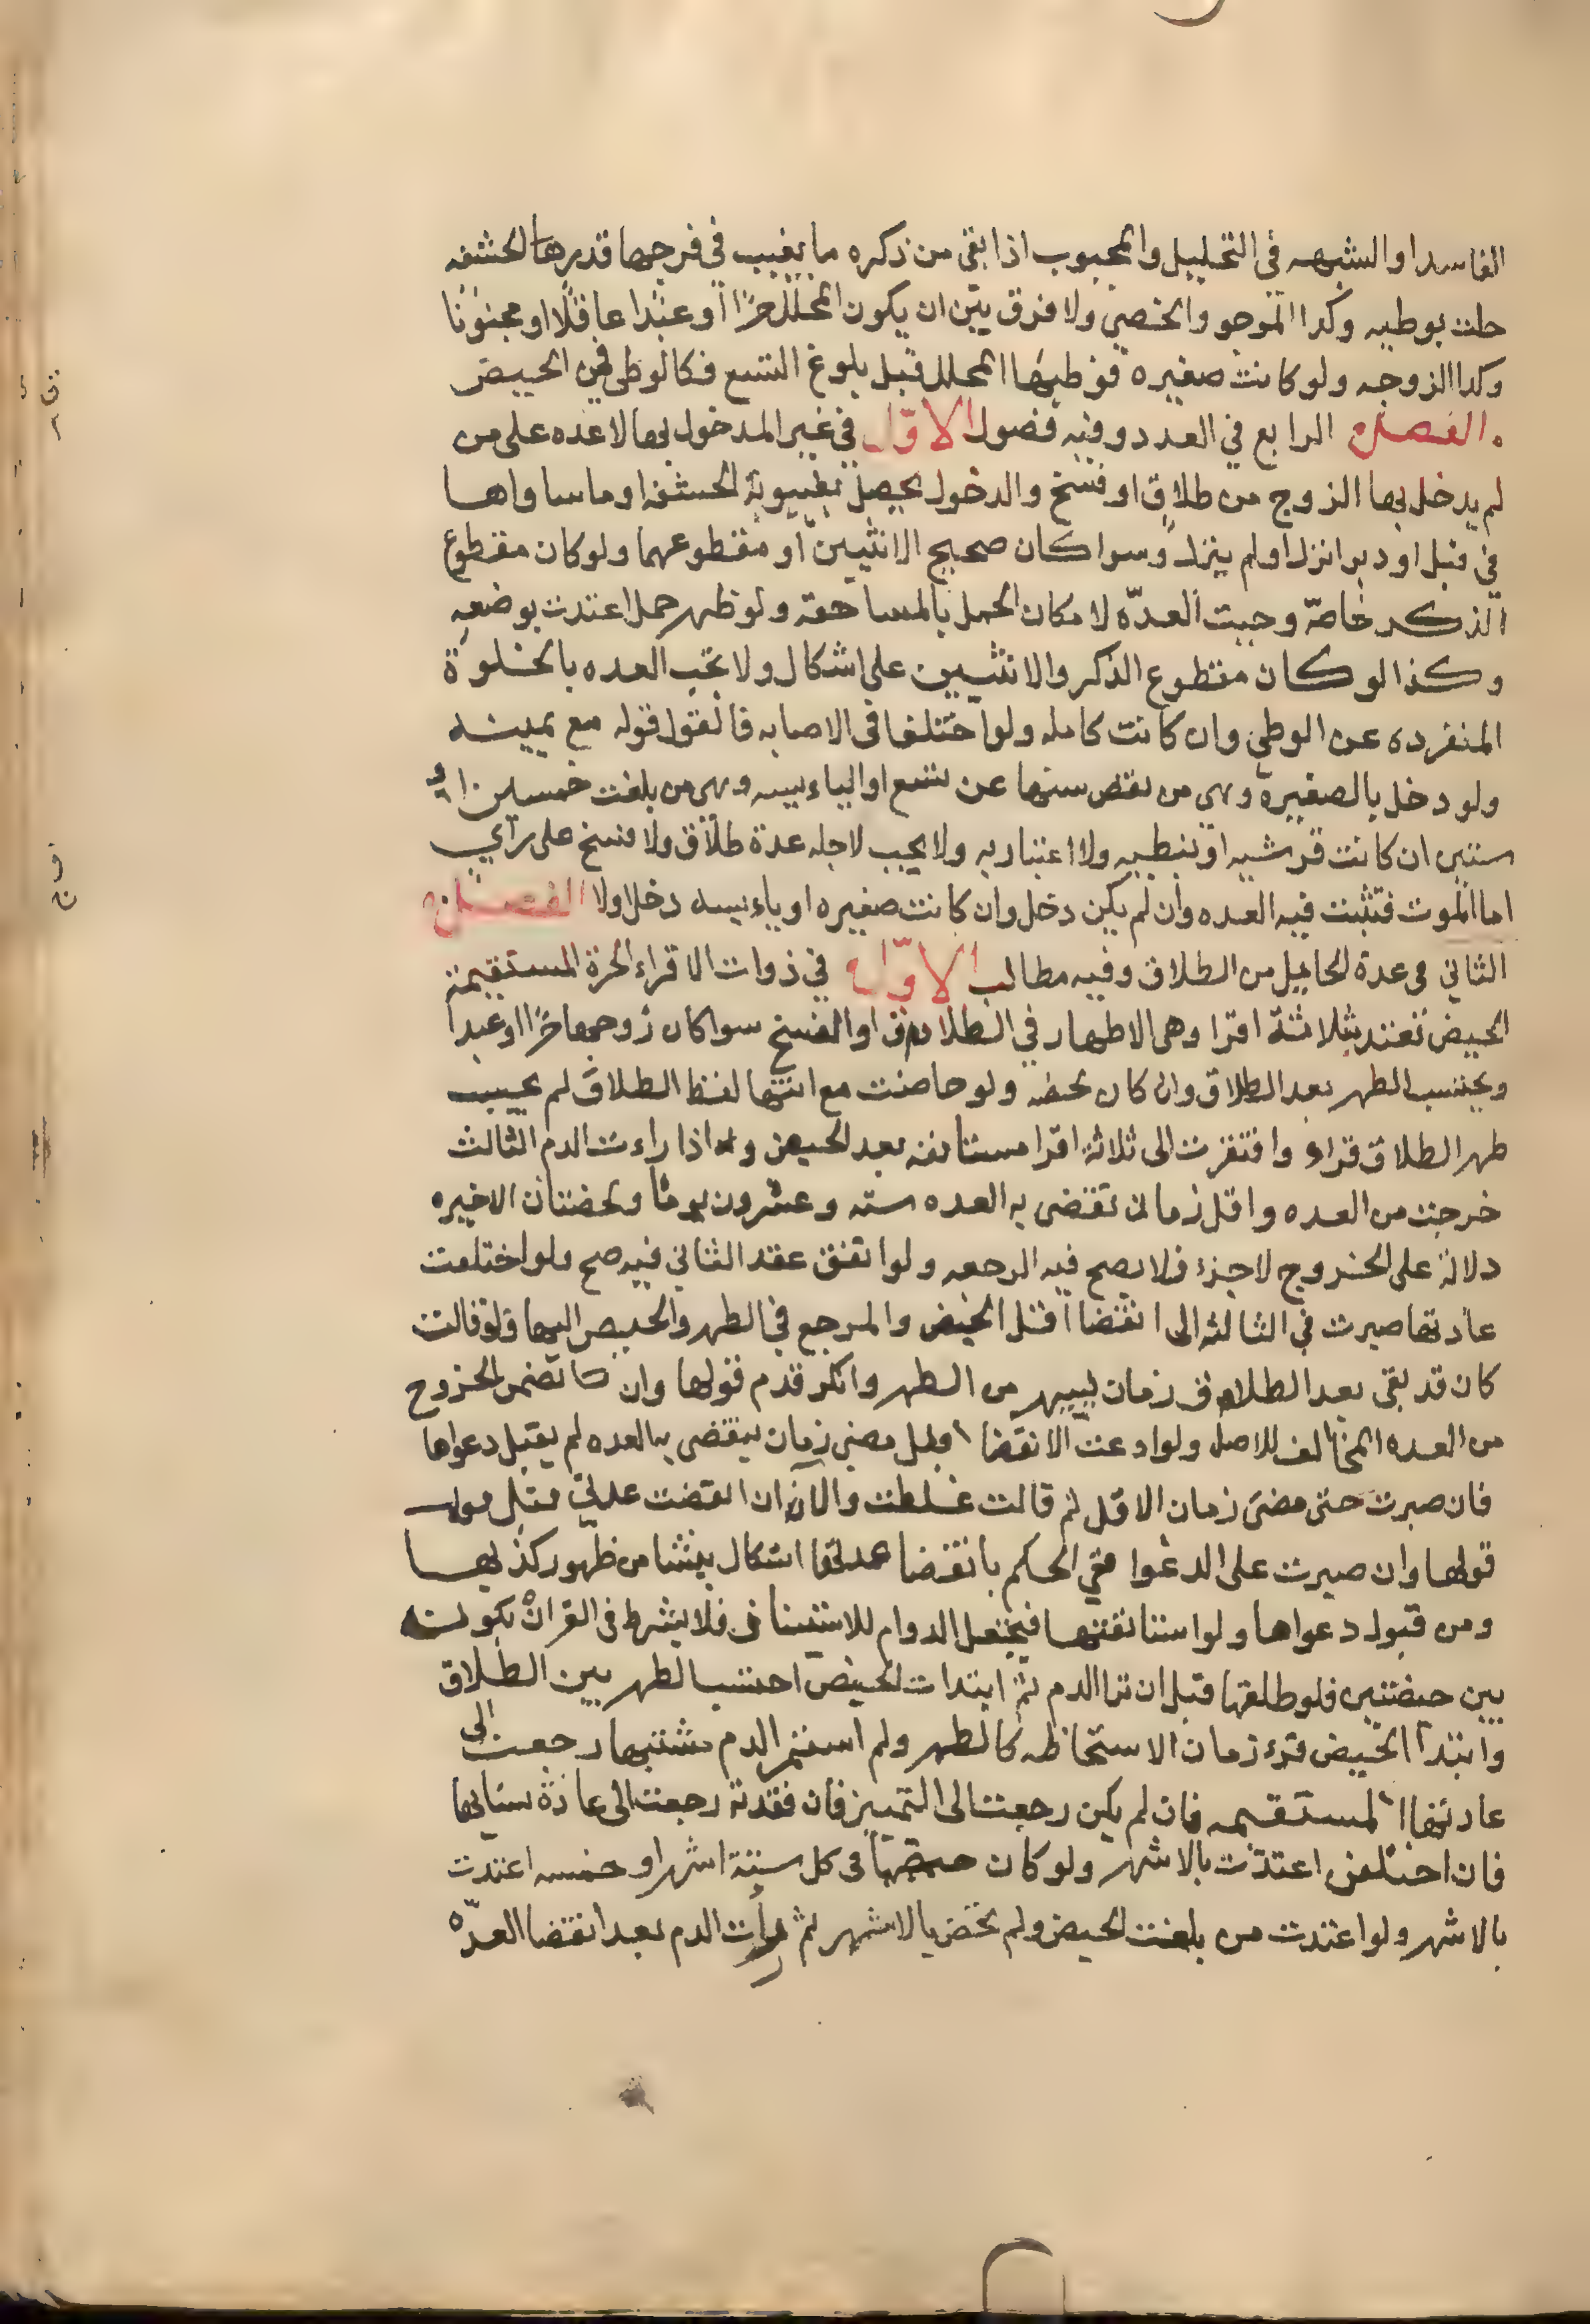 الفاسد او الشبهه في التحليل والمجبوب اذا بقي من ذكره ما يغيب في فرجها قدرها الحشفه
حلت بوطيه وكدا الموجو والخصي ولا فرق بين ان يكون المحلل حرا او عبدا عاقلا او مجنونا
وكدا الزوجه ولو كانت صغيره فوطيها المحلل قبل بلوغ التسع فكالوطي في الحيض
الفصل الرابع في العدد وفيه فصول الاول في غير المدخول بها لا عده على من
لم يدخل بها الزوج من طلاق او فسخ والدخول يحصل بغيبوبة الحشفه او ما ساواها
في قبل او دبر انزل او لم ينزل وسوا كان صحيح الانثيين او مقطوعهما ولو كان مقطوع
الذكر خاصّة وجبت العدّه لامكان الحمل بالمساحقه ولو ظهر حمل اعتدت بوضعه
وكذا لو كان مقطوع الذكر والانثيين على اشكال ولا تجب العده بالخلوة
المنفرده عن الوطي وان كانت كامله ولو اختلفا في الاصابه فالقول قوله مع يمينه
ولو دخل بالصغيرة وهي من نقص سنها عن تسع او اليايسه وهي من بلغت خمسين او
ستين ان كانت قرشيه او نبطيه ولا اعتبار به ولا يجب لاجله عدة طلاق ولا فسخ على راي
اما الموت فتثبت فيه العده وان لم يكن دخل وان كانت صغيره او ياءيسه دخل او لا الفصل
الثاني في عدة الحايل من الطلاق وفيه مطالب الاول في ذوات الاقراء الحرة المستقيمة
الحيض تعتد بثلاثة اقرا وهي الاطهار في الطلاق او الفسخ سوا كان زوجها حرا او عبدا
ويحتسب بالطهر بعد الطلاق وان كان لحظه ولو حاضت مع انتها لفظ الطلاق لم يحسب
طهر الطلاق قراء وافتقرت الى ثلاثة اقرا مستانفه بعد الحيض واذا راءت الدم الثالث
خرجت من العده واقل زمان تنقضي به العده سته وعشرون يوما ولحظتان الاخيره
دلالة على الخروج لا جزء فلا يصح فيه الرجعه ولو اتفق عقد الثاني فيه صح ولو اختلفت
عادتها صبرت في الثالثه الى انقضا اقل الحيض والمرجع في الطهر والحيض اليها ولو قالت
كان قد بقي بعد الطلاق زمان يسير من الطهر وانكر قدم قولها وان كا تضمن الخروج
من العده المخالف للاصل ولو ادعت الانقضا قبل مضي زمان ينقضي به العده لم يقبل دعواها
فان صبرت حتى مضى زمان الاقل ثم قالت غلطت والان انقضت عدتي قبل
قولها وان صبرت على الدعوا ففي الحكم بانقضا عدتها اشكال ينشا من ظهور كذبها
ومن قبول دعواها ولو استانفتها فيجعل الدوام للاستيناف فلا يشرط في القران بكونه
بين حيضتين فلو طلقها قبل ان ترا الدم ثم ابتدات بالحيض احتسب الطهر بين الطلاق
وابتدا الحيض قرء زمان الاستحاظه كالطهر ولم استمر الدم مشتبها رجعت الى
عادتها المستقيمه فان لم يكن رجعت الى التمييز فان فقدته رجعت الى عادة نسائها
فان اختلفن اعتدت بالاشهر ولو كان حيضها في كل ستة اشهر او خمسه اعتدت
بالاشهر ولو اعتدت من بلغت الحيض ولم تحض بالاشهر ثم رأت الدم بعد انقضا العدّه